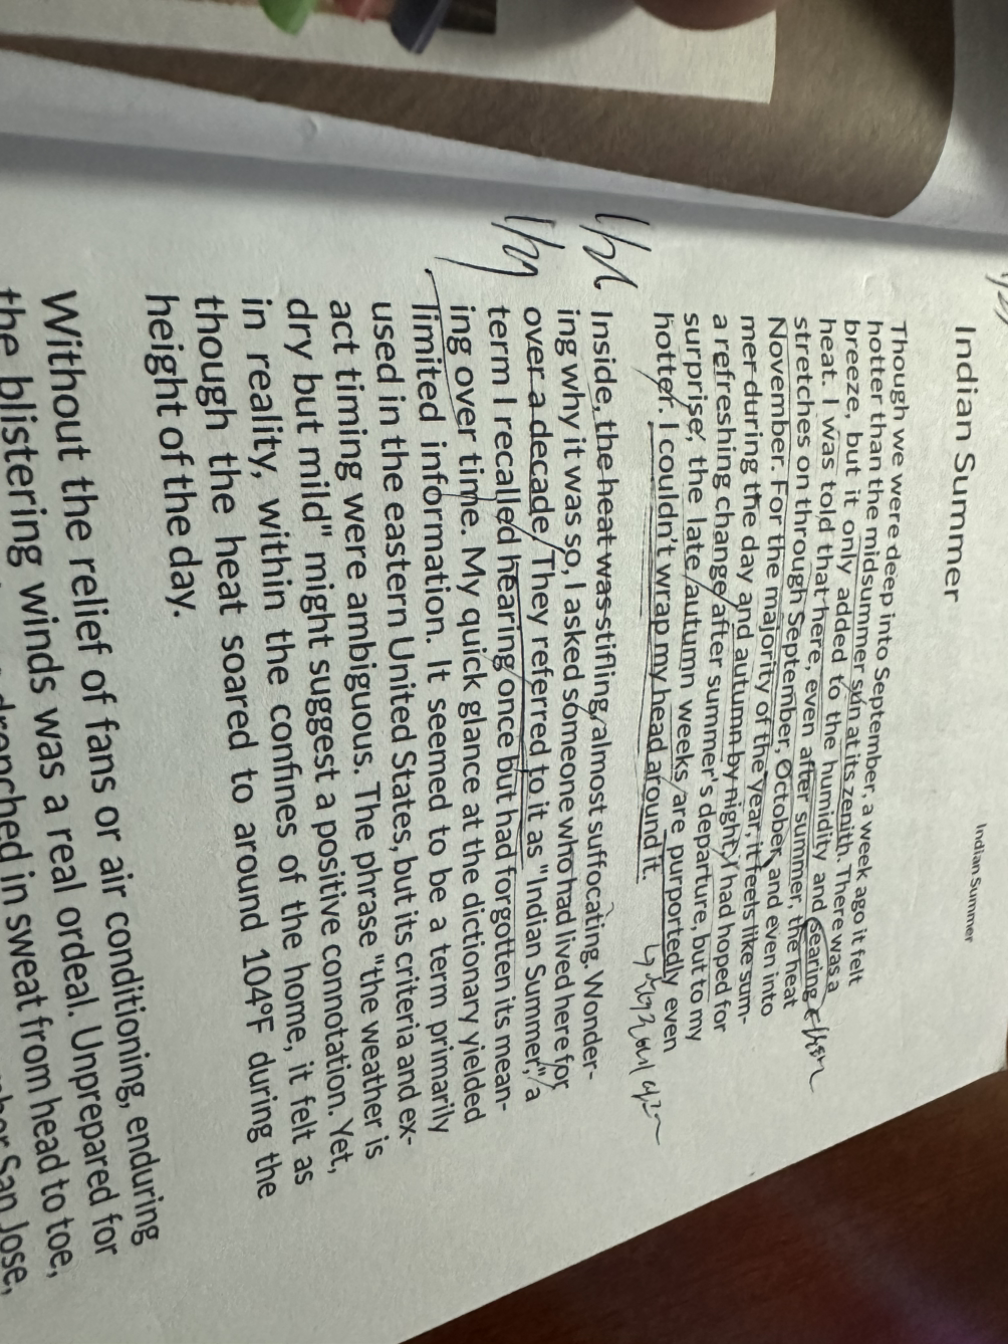 Indian Summer
Indian Summer
Though we were deep into September, a week ago it felt
hotter than the midsummer sun at its zenith. There was a
breeze, but it only added to the humidity and searing
heat. I was told that here, even after summer, the heat
stretches on through September, October, and even into
November. For the majority of the year, it feels like sum-
mer during the day and autumn by night. I had hoped for
a refreshing change after summer's departure, but to my
surprise, the late autumn weeks are purportedly even
hotter. I couldn't wrap my head around it.
Inside, the heat was stifling, almost suffocating. Wonder-
ing why it was so, I asked someone who had lived here for
over a decade. They referred to it as "Indian Summer," a
term I recalled hearing once but had forgotten its mean-
ing over time. My quick glance at the dictionary yielded
limited information. It seemed to be a term primarily
used in the eastern United States, but its criteria and ex-
act timing were ambiguous. The phrase "the weather is
dry but mild" might suggest a positive connotation. Yet,
in reality, within the confines of the home, it felt as
though the heat soared to around 104°F during the
height of the day.
Without the relief of fans or air conditioning, enduring
the blistering winds was a real ordeal. Unprepared for
drenched in sweat from head to toe,
San Jose,